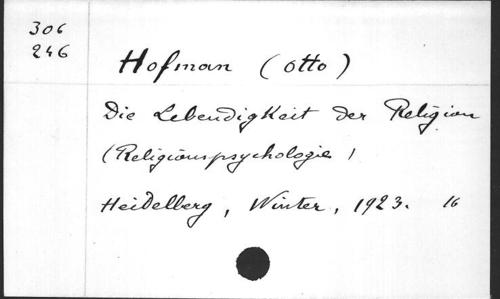 306
246
Hofman (Otto)
Die Lebendigkeit der Religion
(Religionspsychologie)
Heidelberg, Winter, 1923. 16